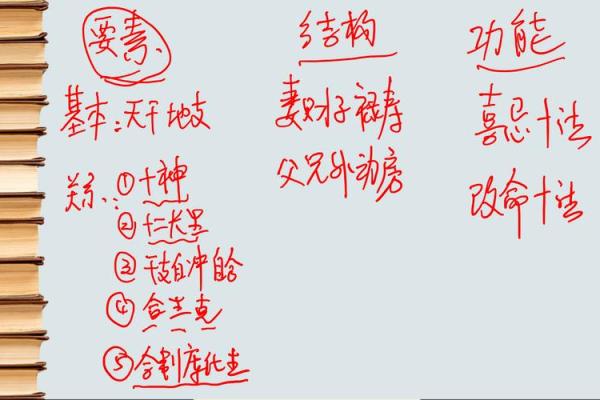 要素
基本:天干地支
关系:①十神
②十二长星
③干支自冲自合
④合生克
⑤合制库化生
结构
妻财子禄寿
父兄外动房
功能
喜忌十法
改命十法